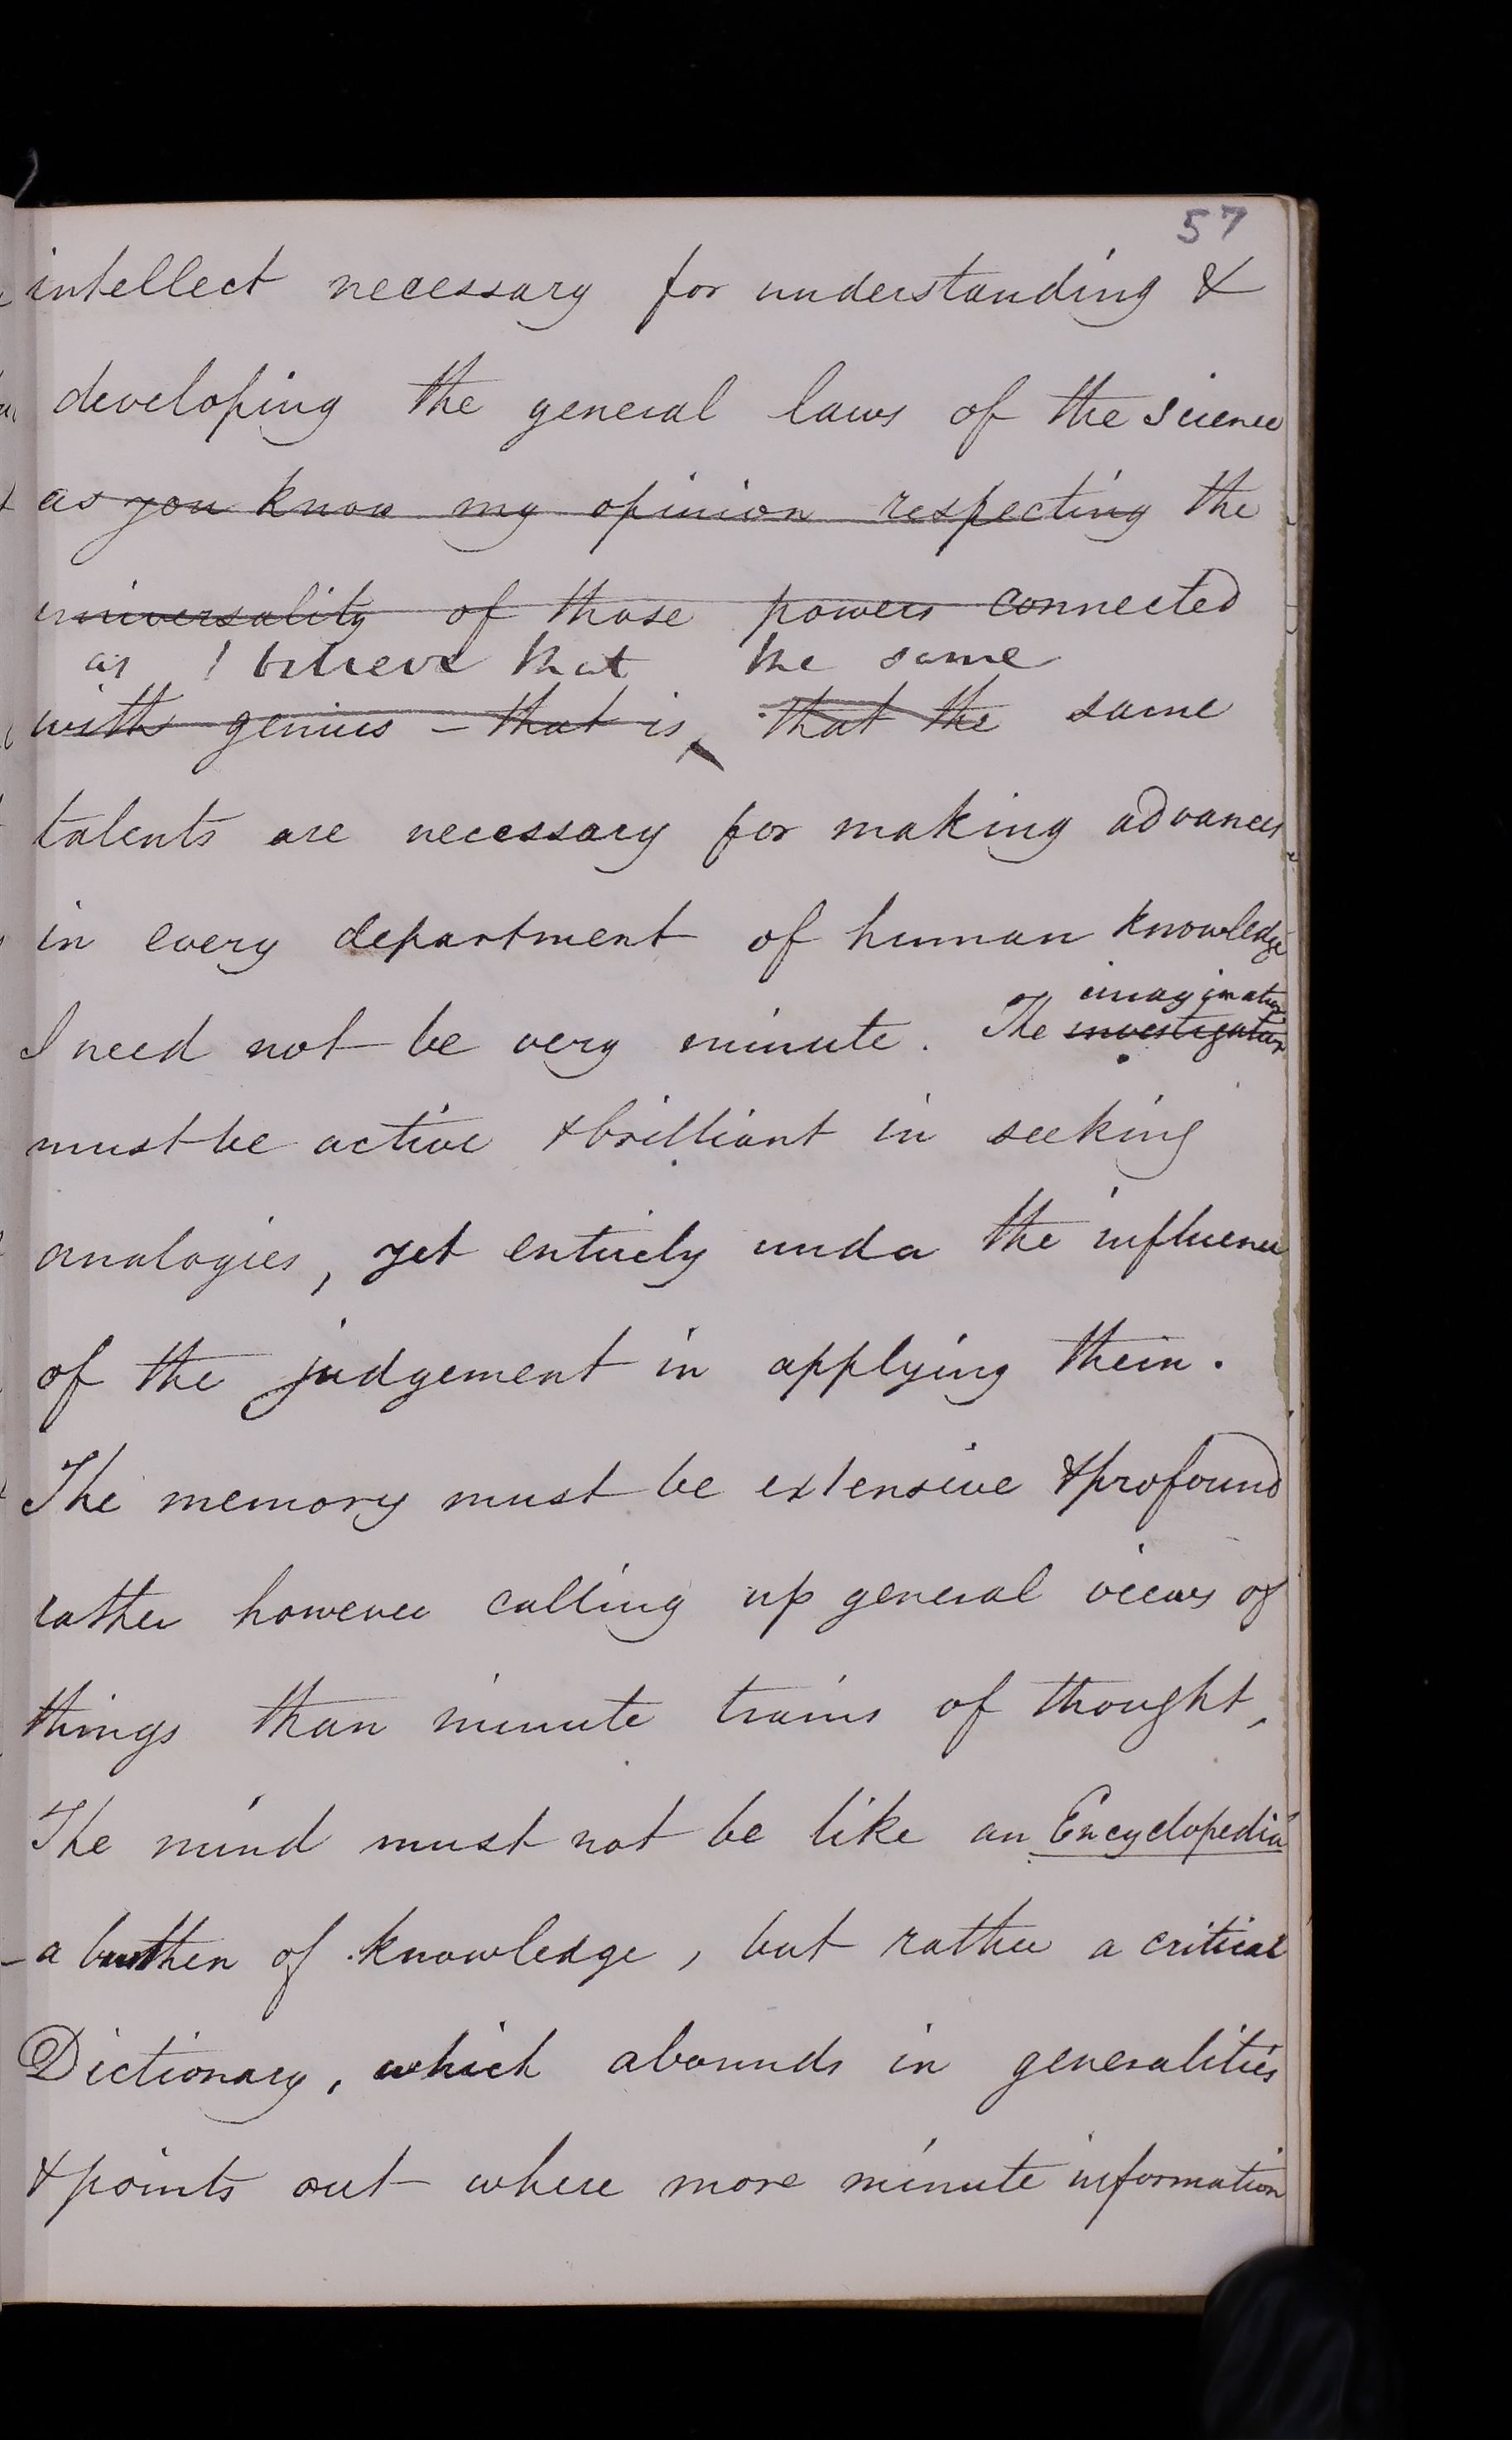 57
intellect necessary for understanding &
developing the general laws of the science
as you know my opinion respecting the
universality of those powers connected
as I believe that the same
with genius – that is, that the same
talents are necessary for making advances
in every department of human knowledge
imagination
I need not be very minute. The investigation
must be active & brilliant in seeking
analogies, yet entirely under the influence
of the judgement in applying them.
The memory must be extensive & profound
rather however calling up general views of
things than minute trains of thought,
The mind must not be like an Encyclopedia
– a burthen of knowledge, but rather a critical
Dictionary, which abounds in generalities
& points out where more minute information